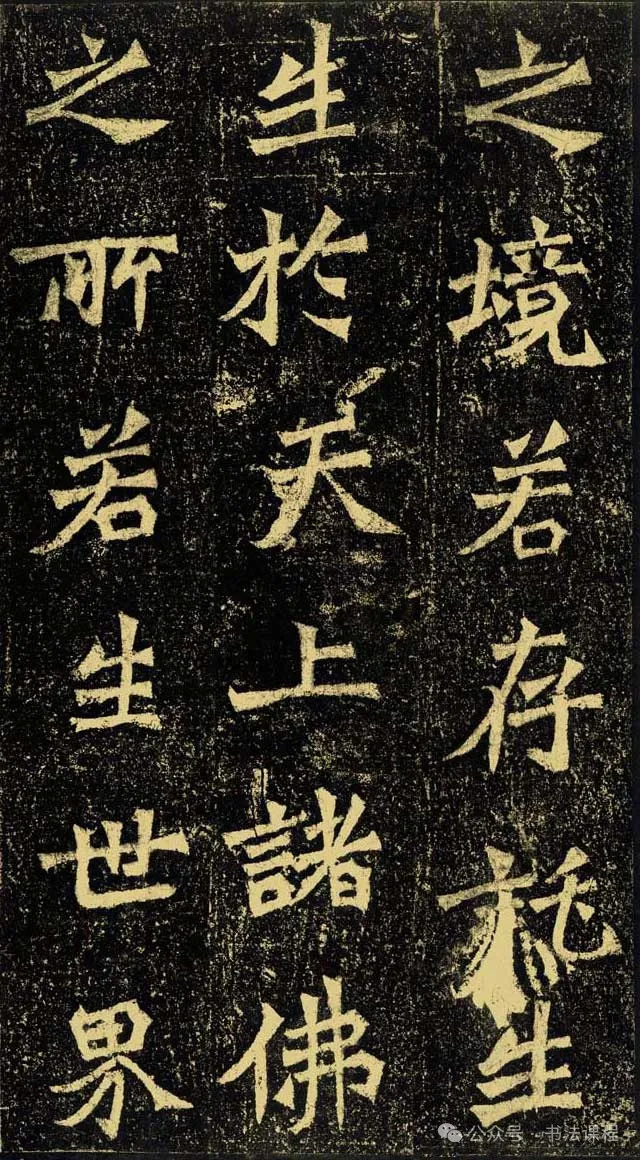 之境若存託生
生於天上諸佛
之所若生世界
公众号 · 书法课程